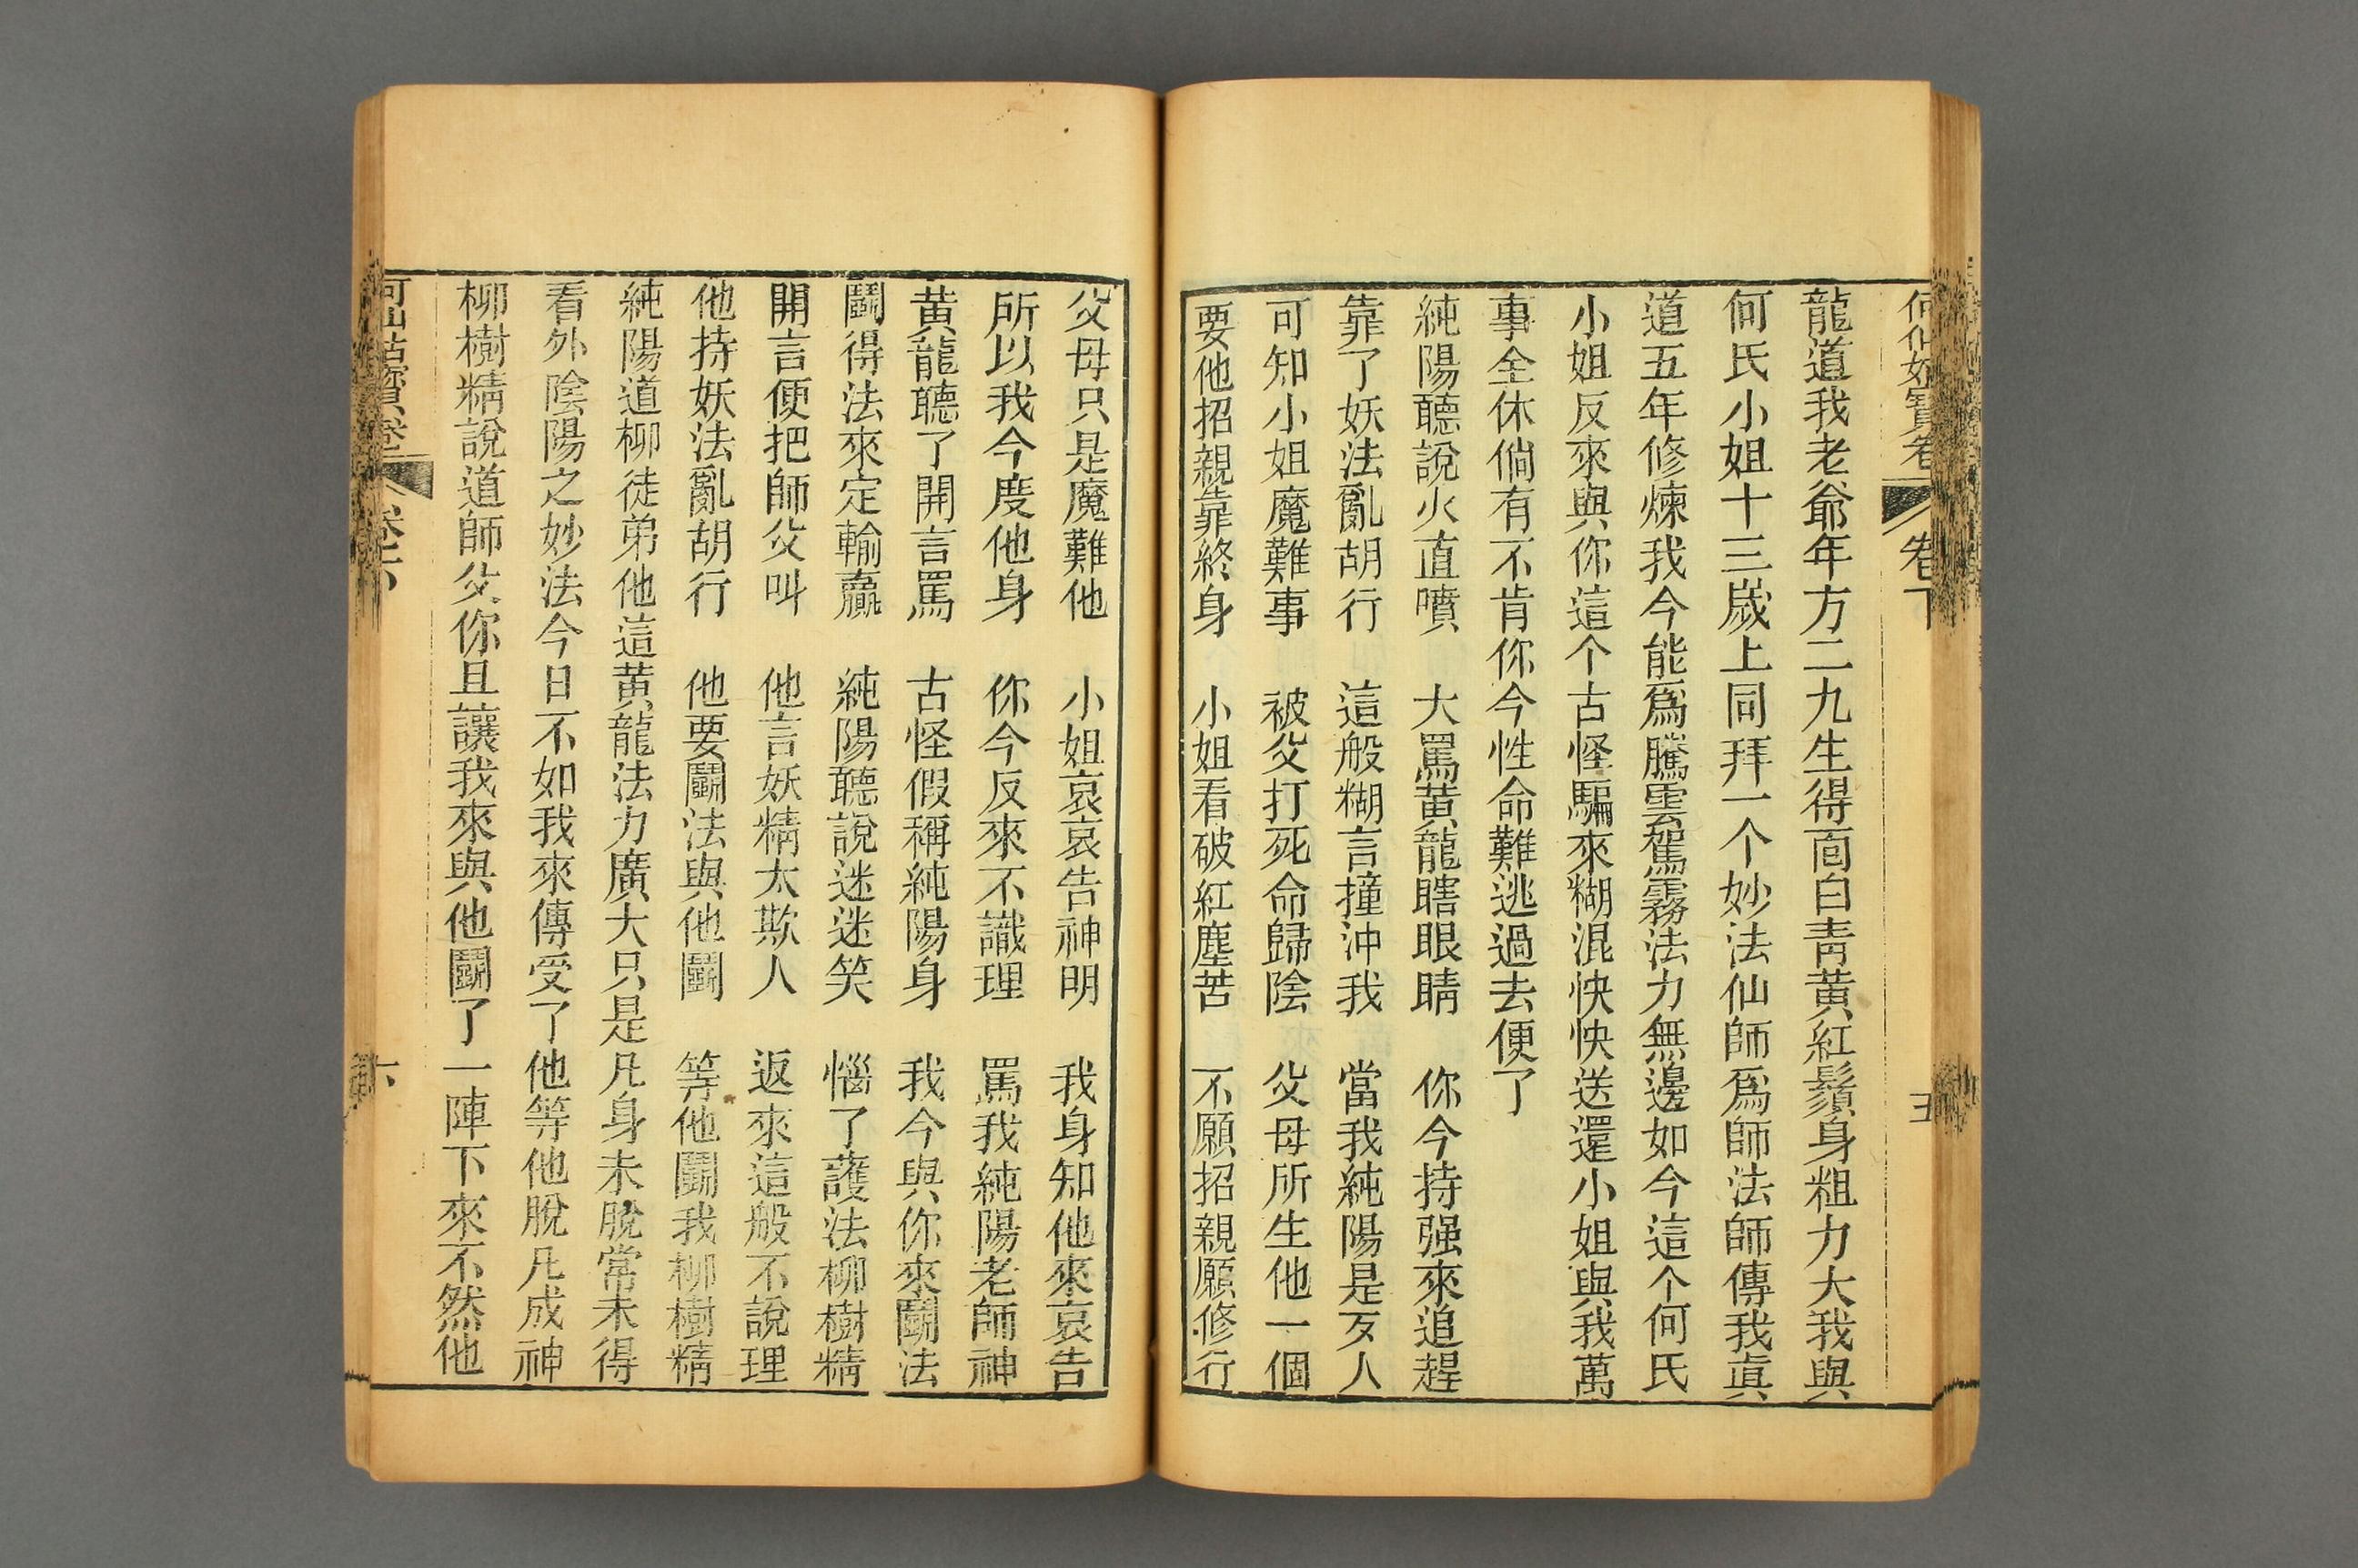 何仙姑寶卷 卷下 五
龍道我老爺年方二九生得面白靑黃紅鬚身粗力大我與
何氏小姐十三歲上同拜一个妙法仙師爲師法師傳我眞
道五年修煉我今能爲騰雲駕霧法力無邊如今這个何氏
小姐反來與你這个古怪騙來糊混快快送還小姐與我萬
事全休倘有不肯你今性命難逃過去便了
純陽聽說火直噴 大罵黃龍瞎眼睛 你今持强來追趕
靠了妖法亂胡行 這般糊言撞沖我 當我純陽是歹人
可知小姐魔難事 被父打死命歸陰 父母所生他一個
要他招親靠終身 小姐看破紅塵苦 不願招親願修行
父母只是魔難他 小姐哀哀告神明 我身知他來哀告
所以我今度他身 你今反來不識理 罵我純陽老師神
黃龍聽了開言罵 古怪假稱純陽身 我今與你來鬭法
鬭得法來定輸贏 純陽聽說迷迷笑 惱了護法柳樹精
開言便把師父叫 他言妖精太欺人 返來這般不說理
他持妖法亂胡行 他要鬭法與他鬭 等他鬭我柳樹精
純陽道柳徒弟他這黃龍法力廣大只是凡身未脫常未得
看外陰陽之妙法今日不如我來傳受了他等他脫凡成神
柳樹精說道師父你且讓我來與他鬭了一陣下來不然他
何仙姑寶卷 卷下